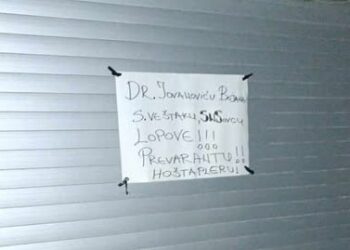 DR. JOVANOVIĆU
S.VEŠTAKU, SNSOVCU
LOPOVE!!!
PREVARANTU!!
HOŠTAPLERU!